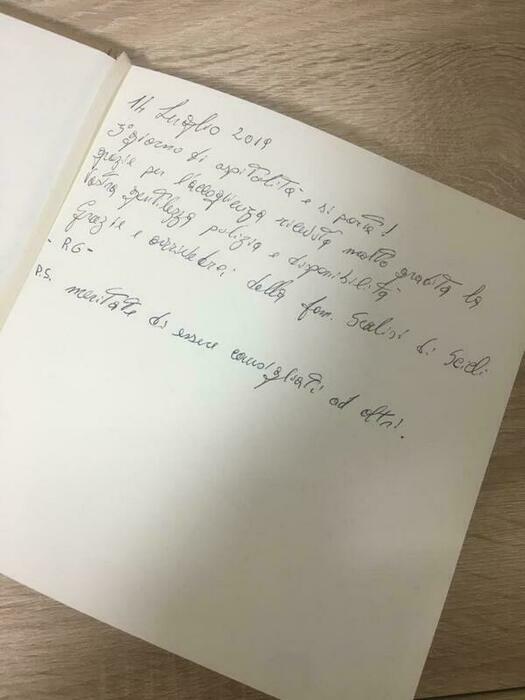 14 Luglio 2019
3° giorno di ospitalità e si parte!
grazie per l'accoglienza ricevuta molto gradita la
Vostra gentilezza pulizia e disponibilità
Grazie e arrivederci della fam. Scalisi di Scicli
- RG -
P.S. meritate di essere consigliati ad altri.